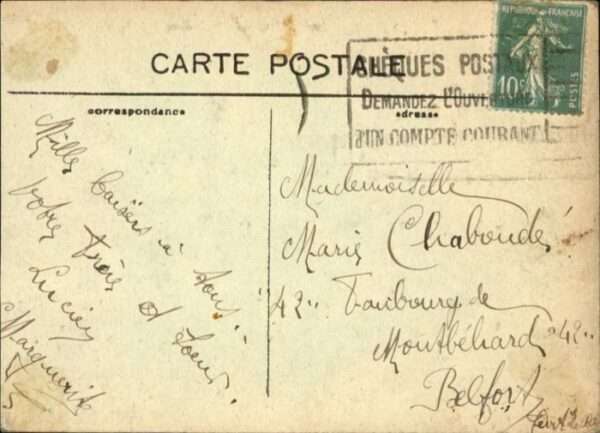 CARTE POSTALE
correspondance
adresse
REPUBLIQUE FRANÇAISE
10c
POSTES
CHÈQUES POSTAUX
DEMANDEZ L'OUVERTURE
D'UN COMPTE COURANT
Milles baisers à tous
votre frère et soeur
Lucien
Marguerite
Mademoiselle
Marie Chaboudé
42" Faubourg de
Montbéliard "42"
Belfort